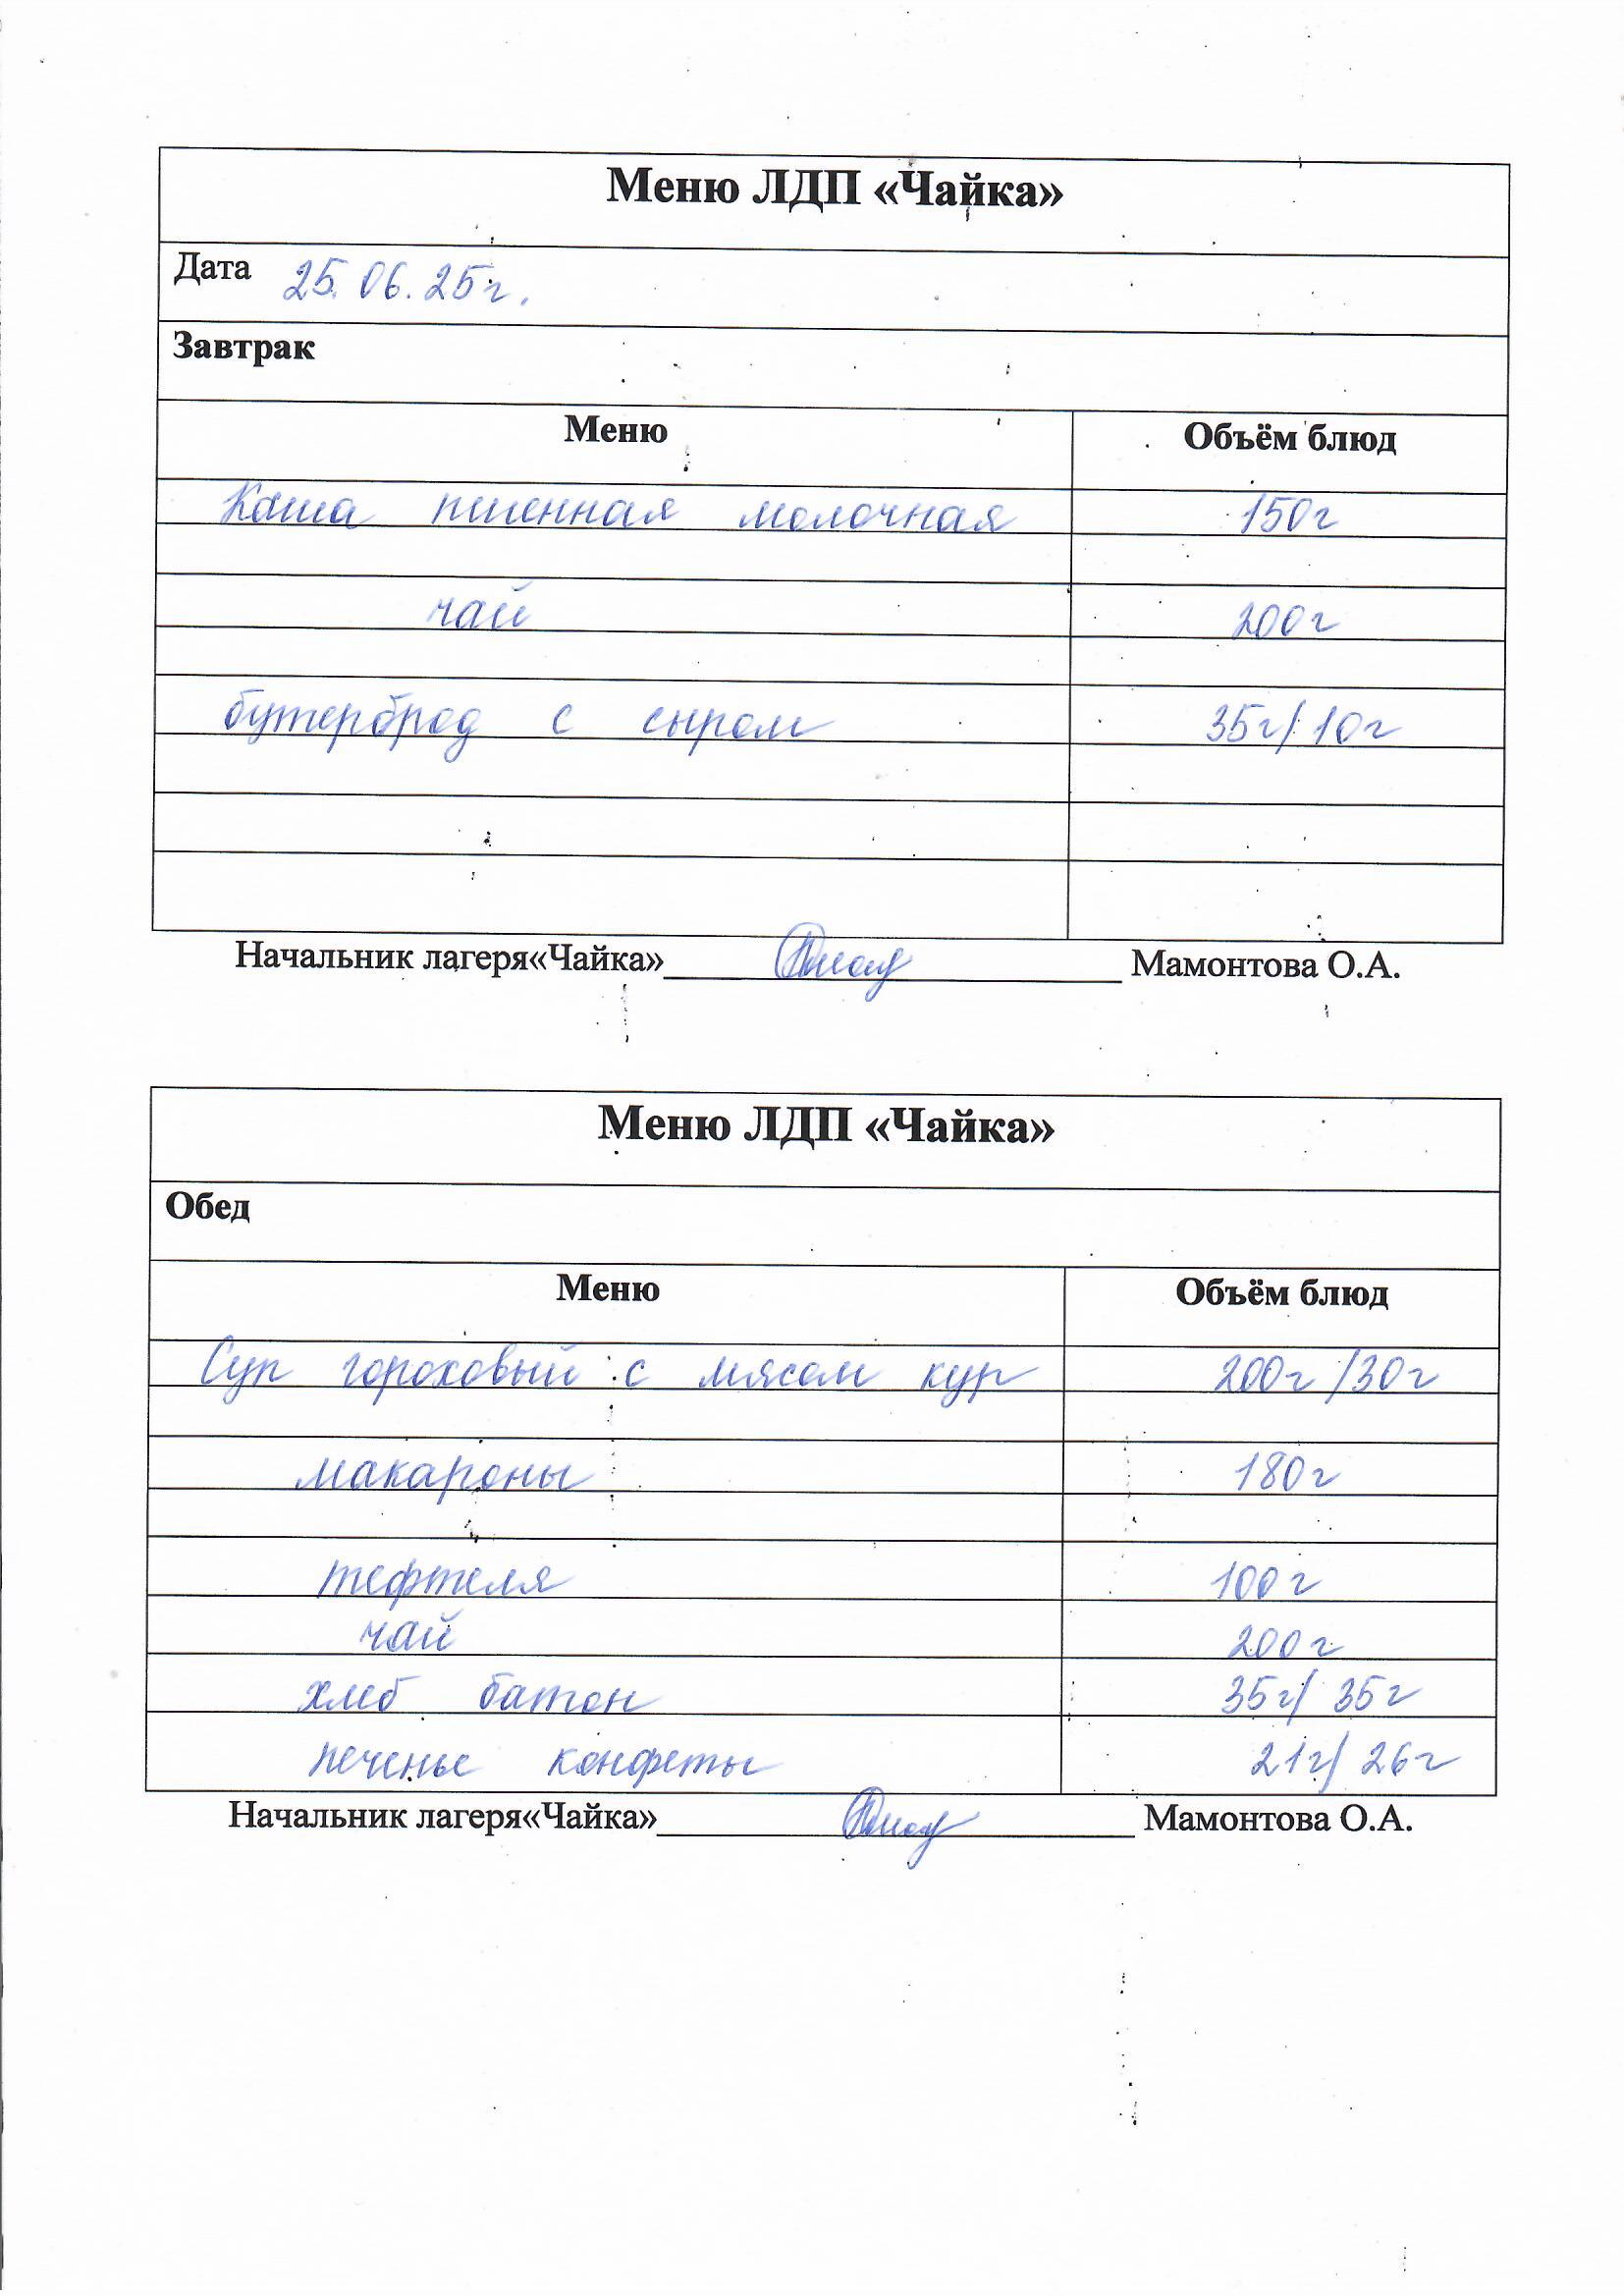 Меню ЛДП «Чайка»
Дата 25.06.25г.
Завтрак
Меню Объём блюд
Каша пшенная молочная 150г
чай 200г
бутерброд с сыром 35г/10г
Начальник лагеря«Чайка» Мамонтова О.А.
Меню ЛДП «Чайка»
Обед
Меню Объём блюд
Суп гороховый с мясом кур 200г/30г
макароны 180г
тефтеля 100г
чай 200г
хлеб батон 35г/35г
печенье конфеты 21г/26г
Начальник лагеря«Чайка» Мамонтова О.А.